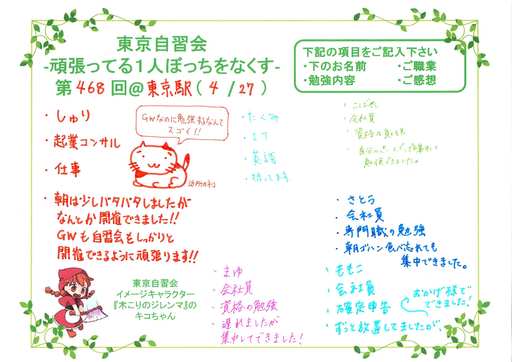 東京自習会
-頑張ってる1人ぼっちをなくす-
第468回@東京駅(4/27)
下記の項目をご記入下さい
・下のお名前 ・ご職業
・勉強内容 ・ご感想
・しゅり
・起業コンサル
・仕事
・朝は少しバタバタしましたが
なんとか開催できました!!
GWも自習会をしっかりと
開催できるように頑張ります!!
GWなのに勉強するなんて
スゴイ!!
・たくみ
・英語
・会社員
・さとう
・会社員
・専門職の勉強
・朝ゴハン食べ忘れても
集中できました。
・まゆ
・会社員
・資格の勉強
・遅れましたが
集中してできました!
・ももこ
・会社員
・確定申告
・ずっと放置してましたが、
おかげ様で
できました!
東京自習会
イメージキャラクター
『木こりのジレンマ』の
キコちゃん